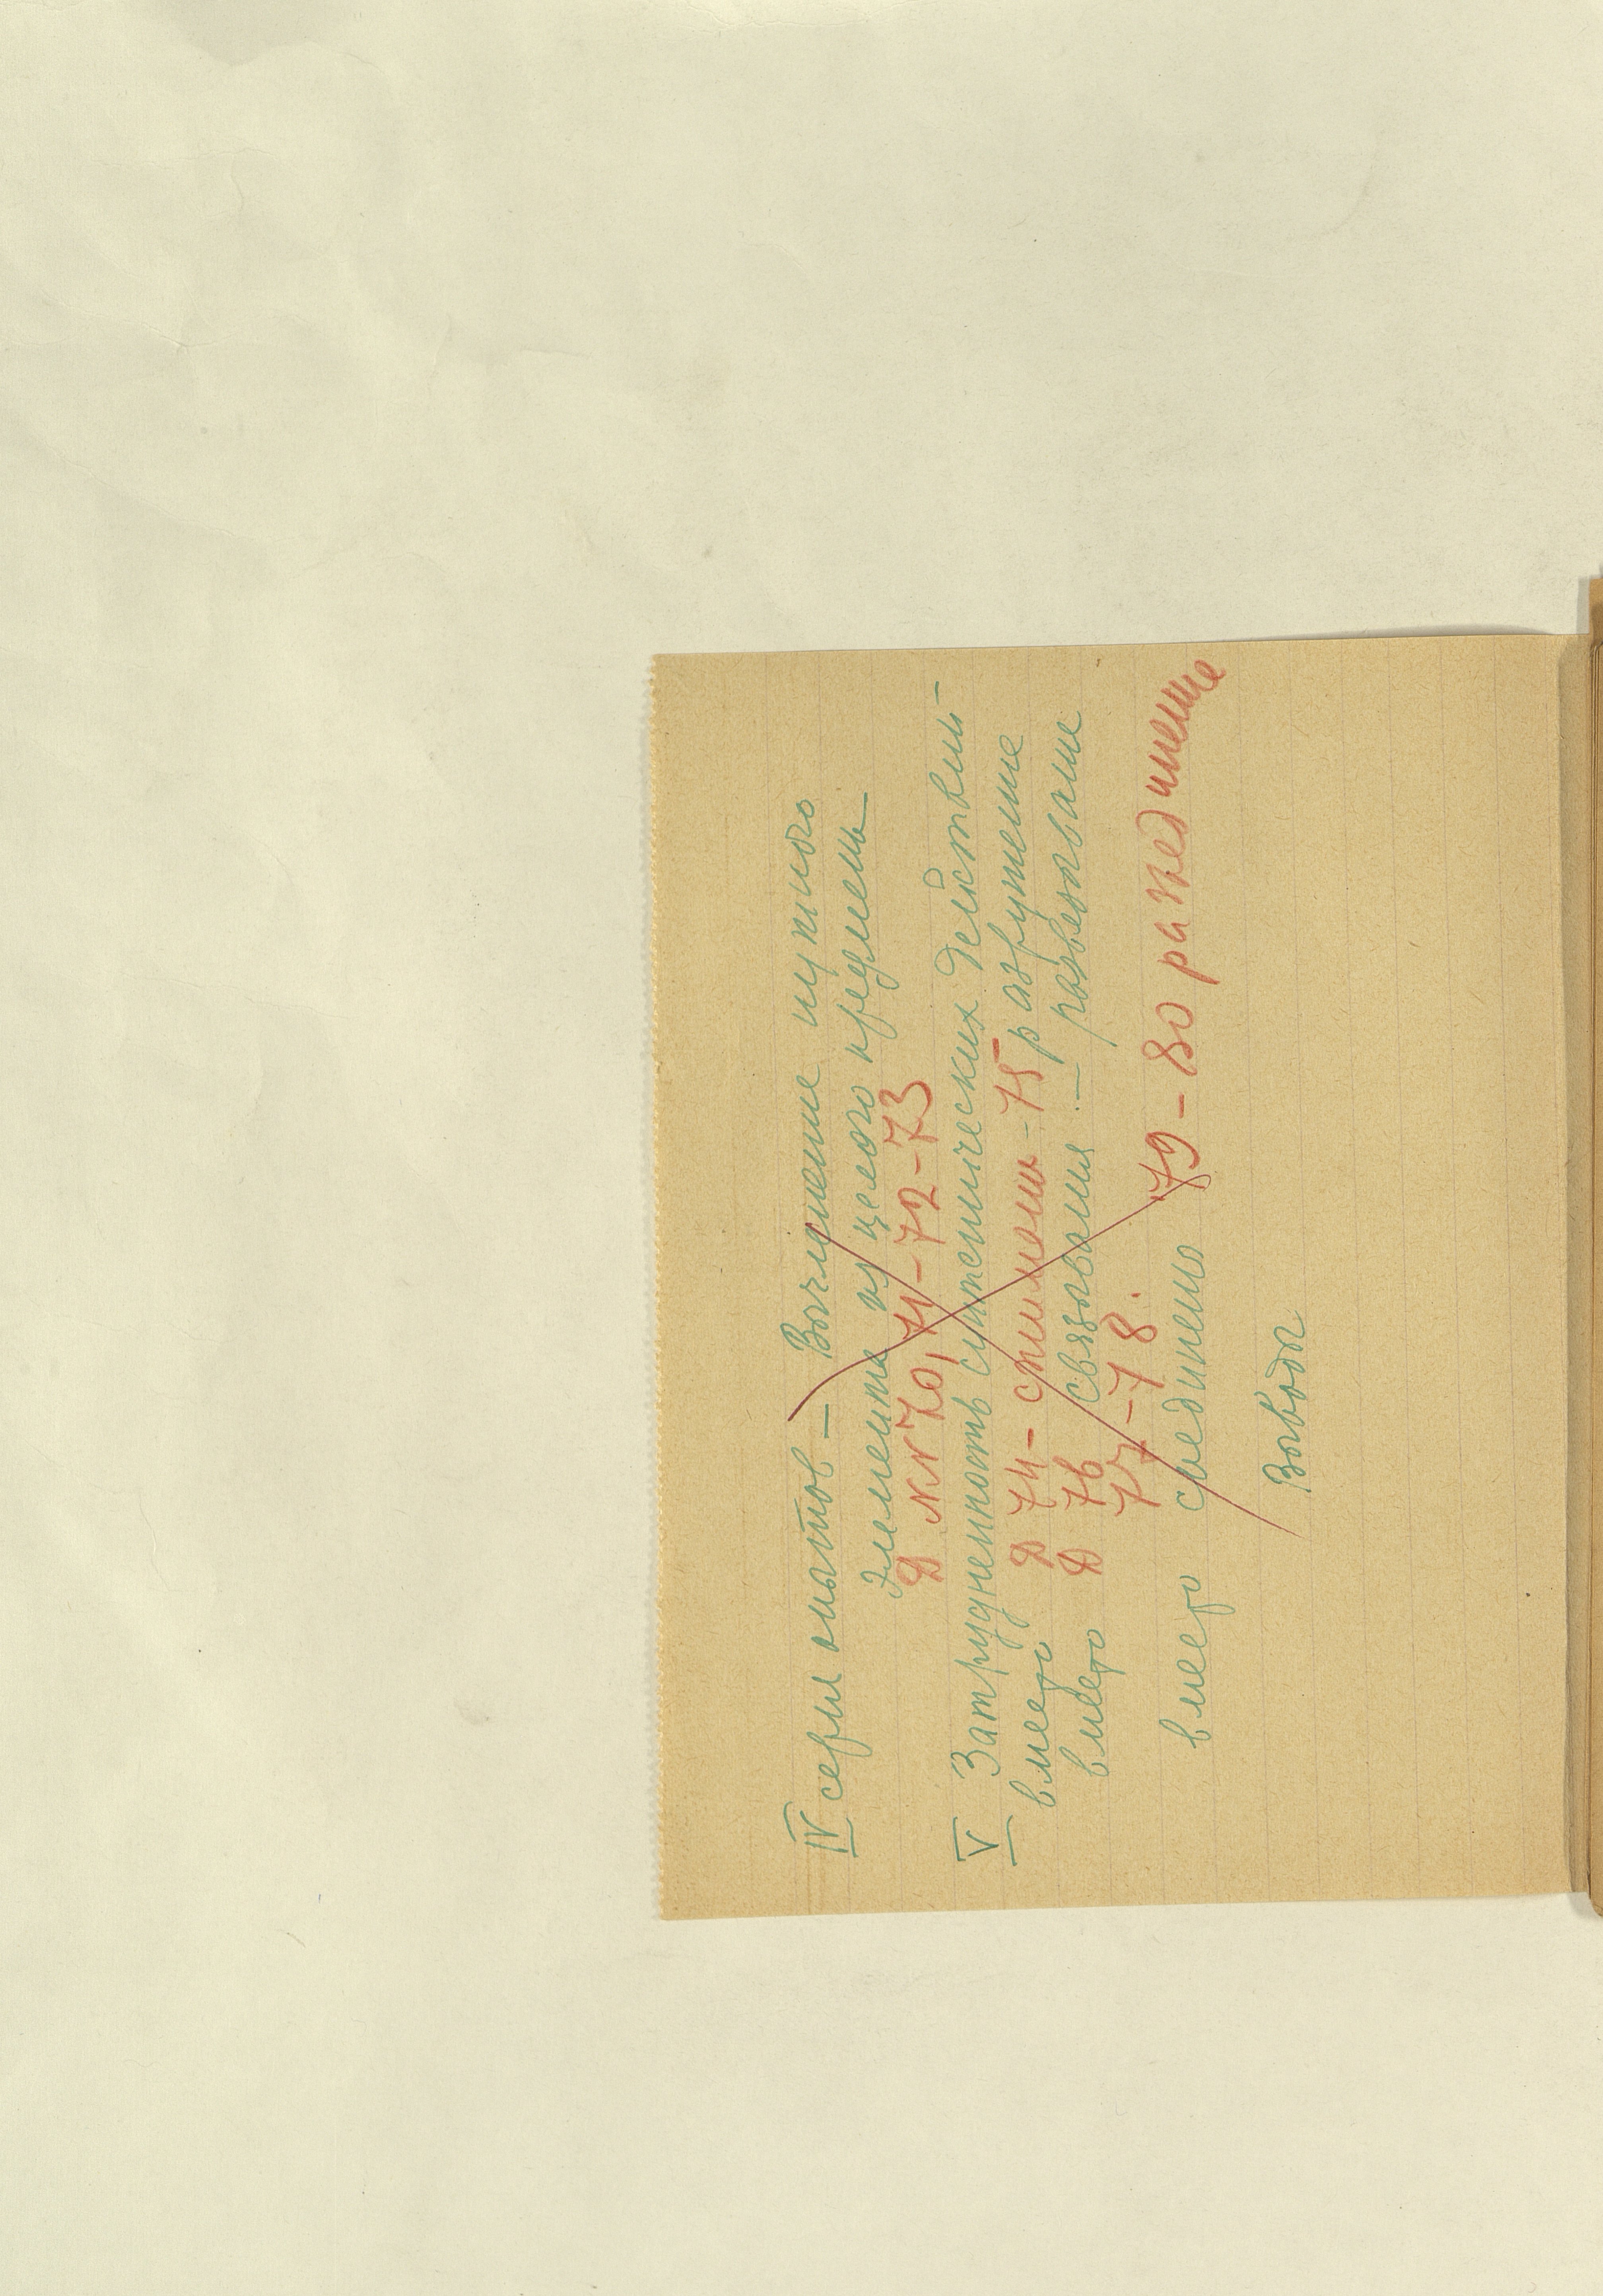 IV серия опытов — Вычленение нужного
элемента из целого предмета —
Д №№ 70, 71 – 72 – 73
V Затрудненность синтетических действий –
вместо Д 74 – – 75 – разрушение
вместо Д 76 связывания. – развязывание
77 – 78.
вместо соединено 79 – 80 разъединение
Выводы